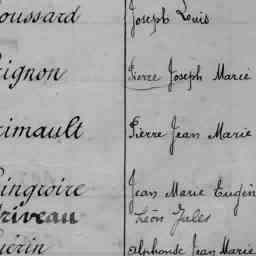 oussard Joseph Louis
ignon Pierre Joseph Marie
rimault Pierre Jean Marie
ingeoire Jean Marie Eugèn
riveau Léon Jules
uérin Alphonse Jean Marie